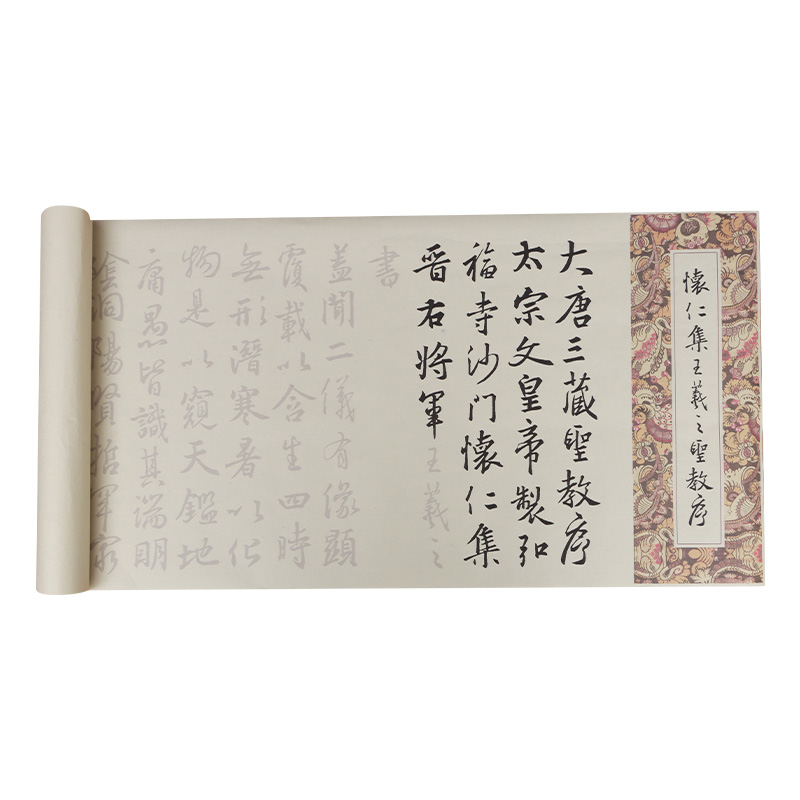 懷仁集王羲之聖教序
大唐三藏聖教序
太宗文皇帝製弘
福寺沙門懷仁集
晉右將軍王羲之
書
蓋聞二儀有像顯
覆載以含生四時
無形潛寒暑以化
物是以窺天鑑地
庸愚皆識其端明
陰洞陽賢哲罕窮